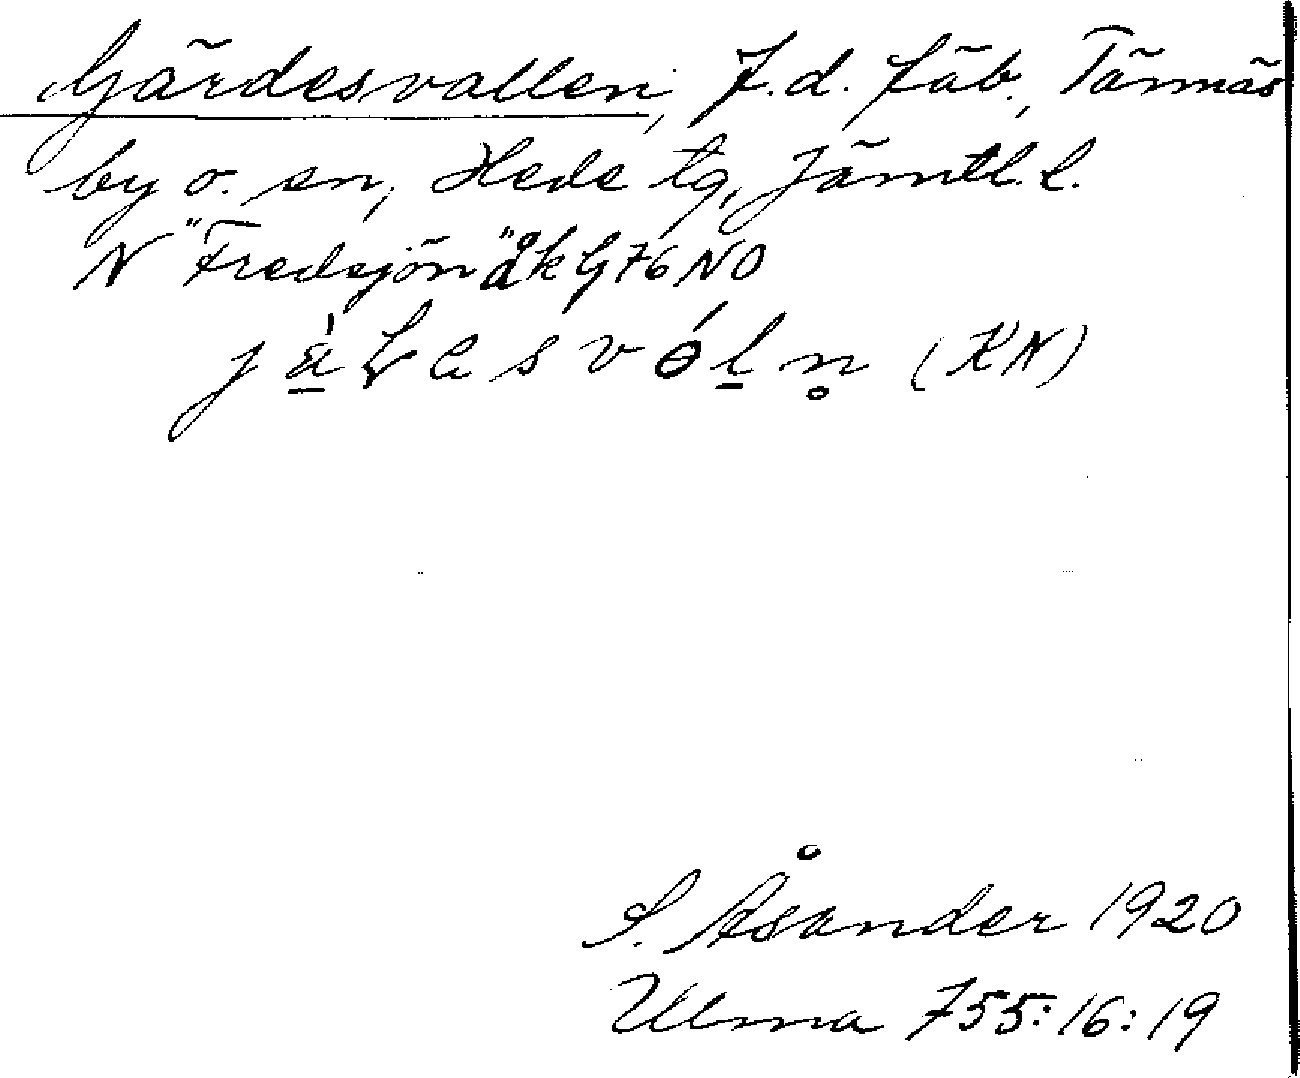 Gärdesvallen, F.d. fäb., Tännäs
by o. sn, Hede tg, Jämtl. l.
N "Fredsjön" åk G76 NO
(KN)
S. Åsander 1920
Ulma 755:16:19